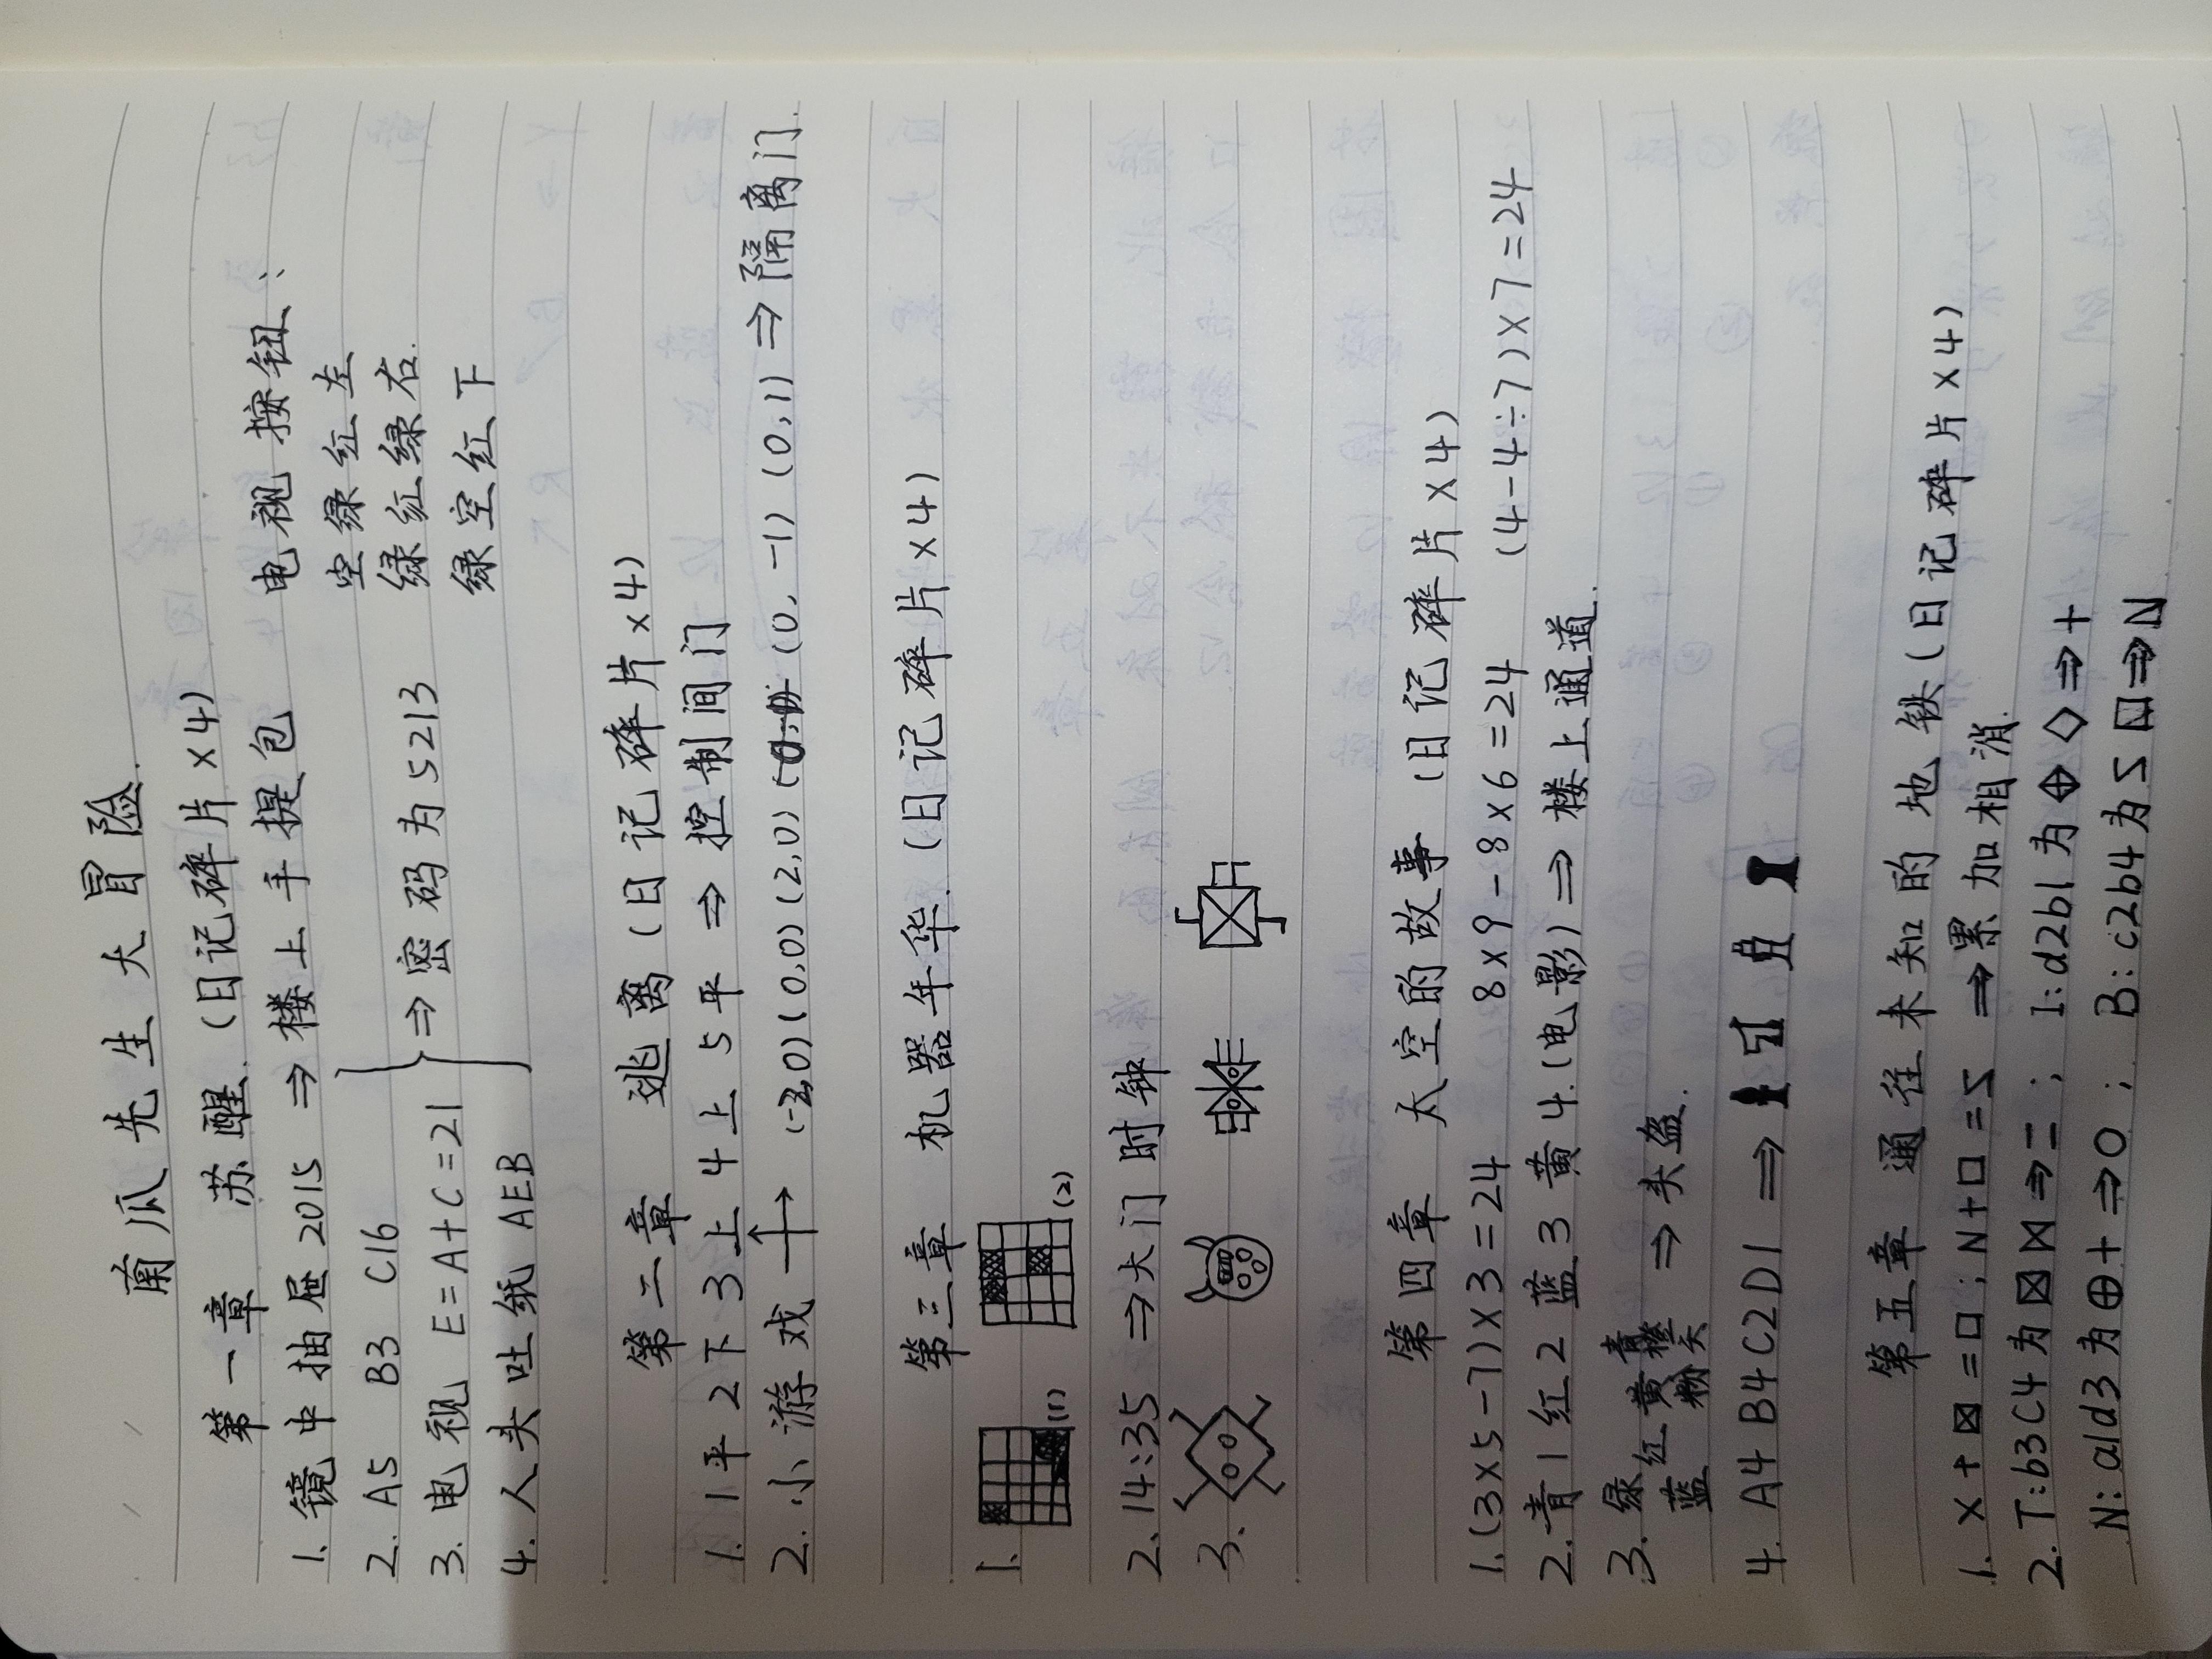 南瓜先生大冒险.
第一章 苏醒.(日记碎片×4)
1. 镜中抽屉2015 ⇒ 楼上手提包 电视按钮:
2. A5 B3 C16 空绿红左
3. 电视 E=A+C=21 ⇒密码为5213 绿红绿右.
4. 人头吐纸 AEB 绿空红下
第二章 逃离(日记碎片×4)
1. 1平2下3上4上5平 ⇒ 控制间门
2. 小游戏 (0,0)(2,0) (0,-1)(0,1) ⇒隔离门.
第三章 机器年华.(日记碎片×4)
1. (1) (2)
2. 14:35 ⇒大门时钟
3.
第四章 太空的故事(日记碎片×4)
1. (3×5-7)×3=24 8×9-8×6=24 (4-4÷7)×7=24
2. 青1红2蓝3黄4.(电影)⇒楼上通道.
3. 绿红黄 ⇒ 头盔.
蓝
4. A4 B4 C2 D1 ⇒
第五章 通往未知的地铁(日记碎片×4)
1. ×+⊠=□; N+□=Σ ⇒累加相消.
2. T:b3C4为⊠ ⇒=; I:d2b1为 ◇⇒+
N:a1d3为⊕+⇒O; B:c2b4为Σ ⇒N